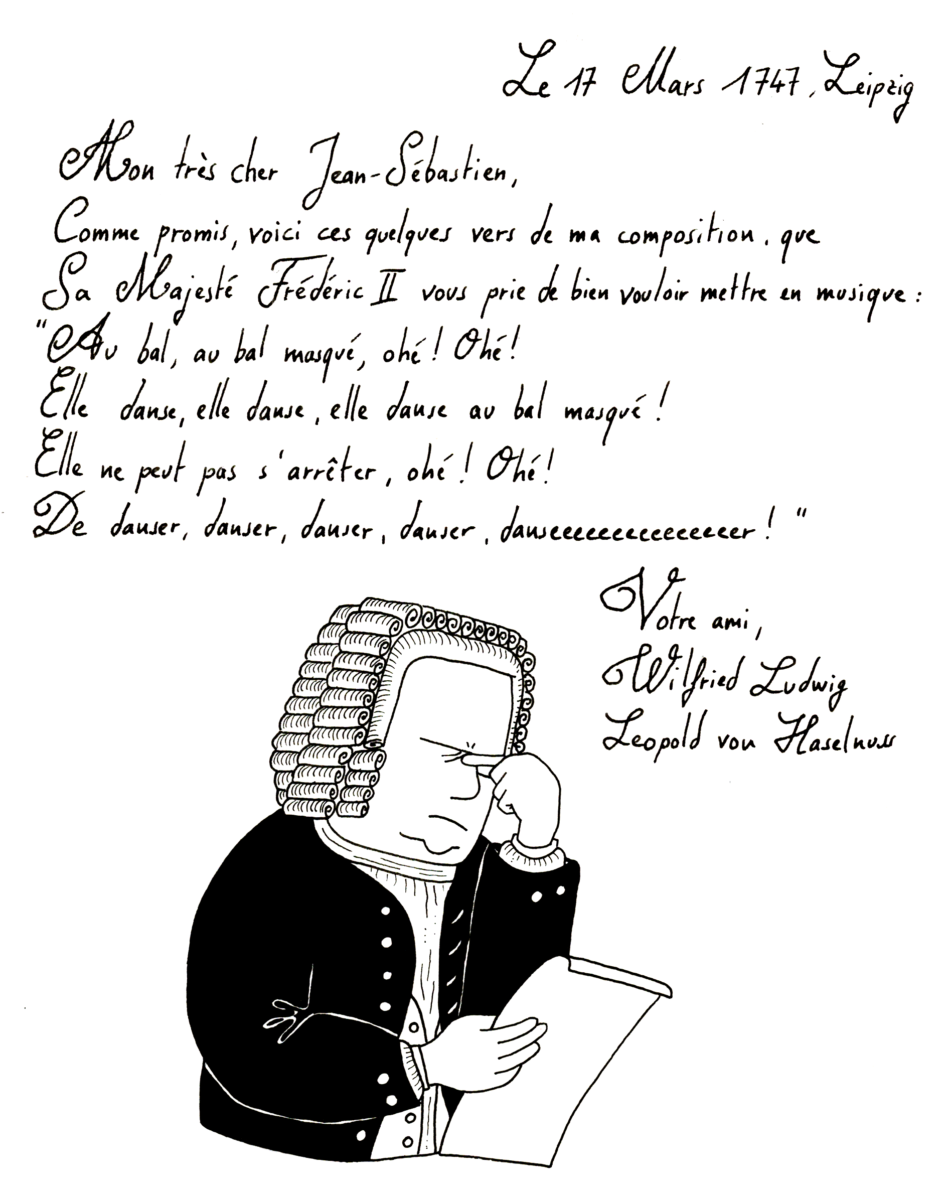 Le 17 Mars 1747, Leipzig
Mon très cher Jean-Sébastien,
Comme promis, voici ces quelques vers de ma composition, que
Sa Majesté Frédéric II vous prie de bien vouloir mettre en musique :
"Au bal, au bal masqué, ohé ! Ohé !
Elle danse, elle danse, elle danse au bal masqué !
Elle ne peut pas s'arrêter, ohé ! Ohé !
De danser, danser, danser, danser, danseeeeeeeeeeeeeeeer ! "
Votre ami,
Wilfried Ludwig
Leopold von Haselnuss